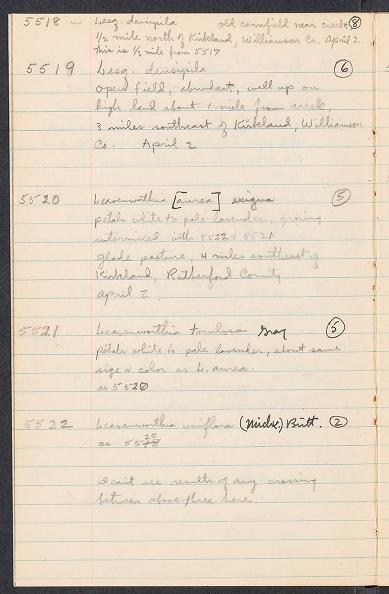 5518 — Lesq. densipila old cornfield near creek (8)
1/2 mile north of Kirkland, Williamson Co. April 2.
This is 1/2 mile from 5517
5519 Lesq. densipila (6)
open field, abundant, well up on
high land about 1 mile from creek,
3 miles southeast of Kirkland, Williamson
Co. April 2
5520 Leavenworthia [aurea] exigua (5)
petals white to pale lavender, growing
intermixed with 5522 & 5521
glade pasture, 4 miles southeast of
Kirkland, Rutherford County
April 2
5521 Leavenworthia torulosa Gray (5)
petals white to pale lavender, about same
size & color as L. aurea.
as 5520
5522 Leavenworthia uniflora (Michx.) Britt. (2)
as 5520
I can't see results of any crossing
between above three here